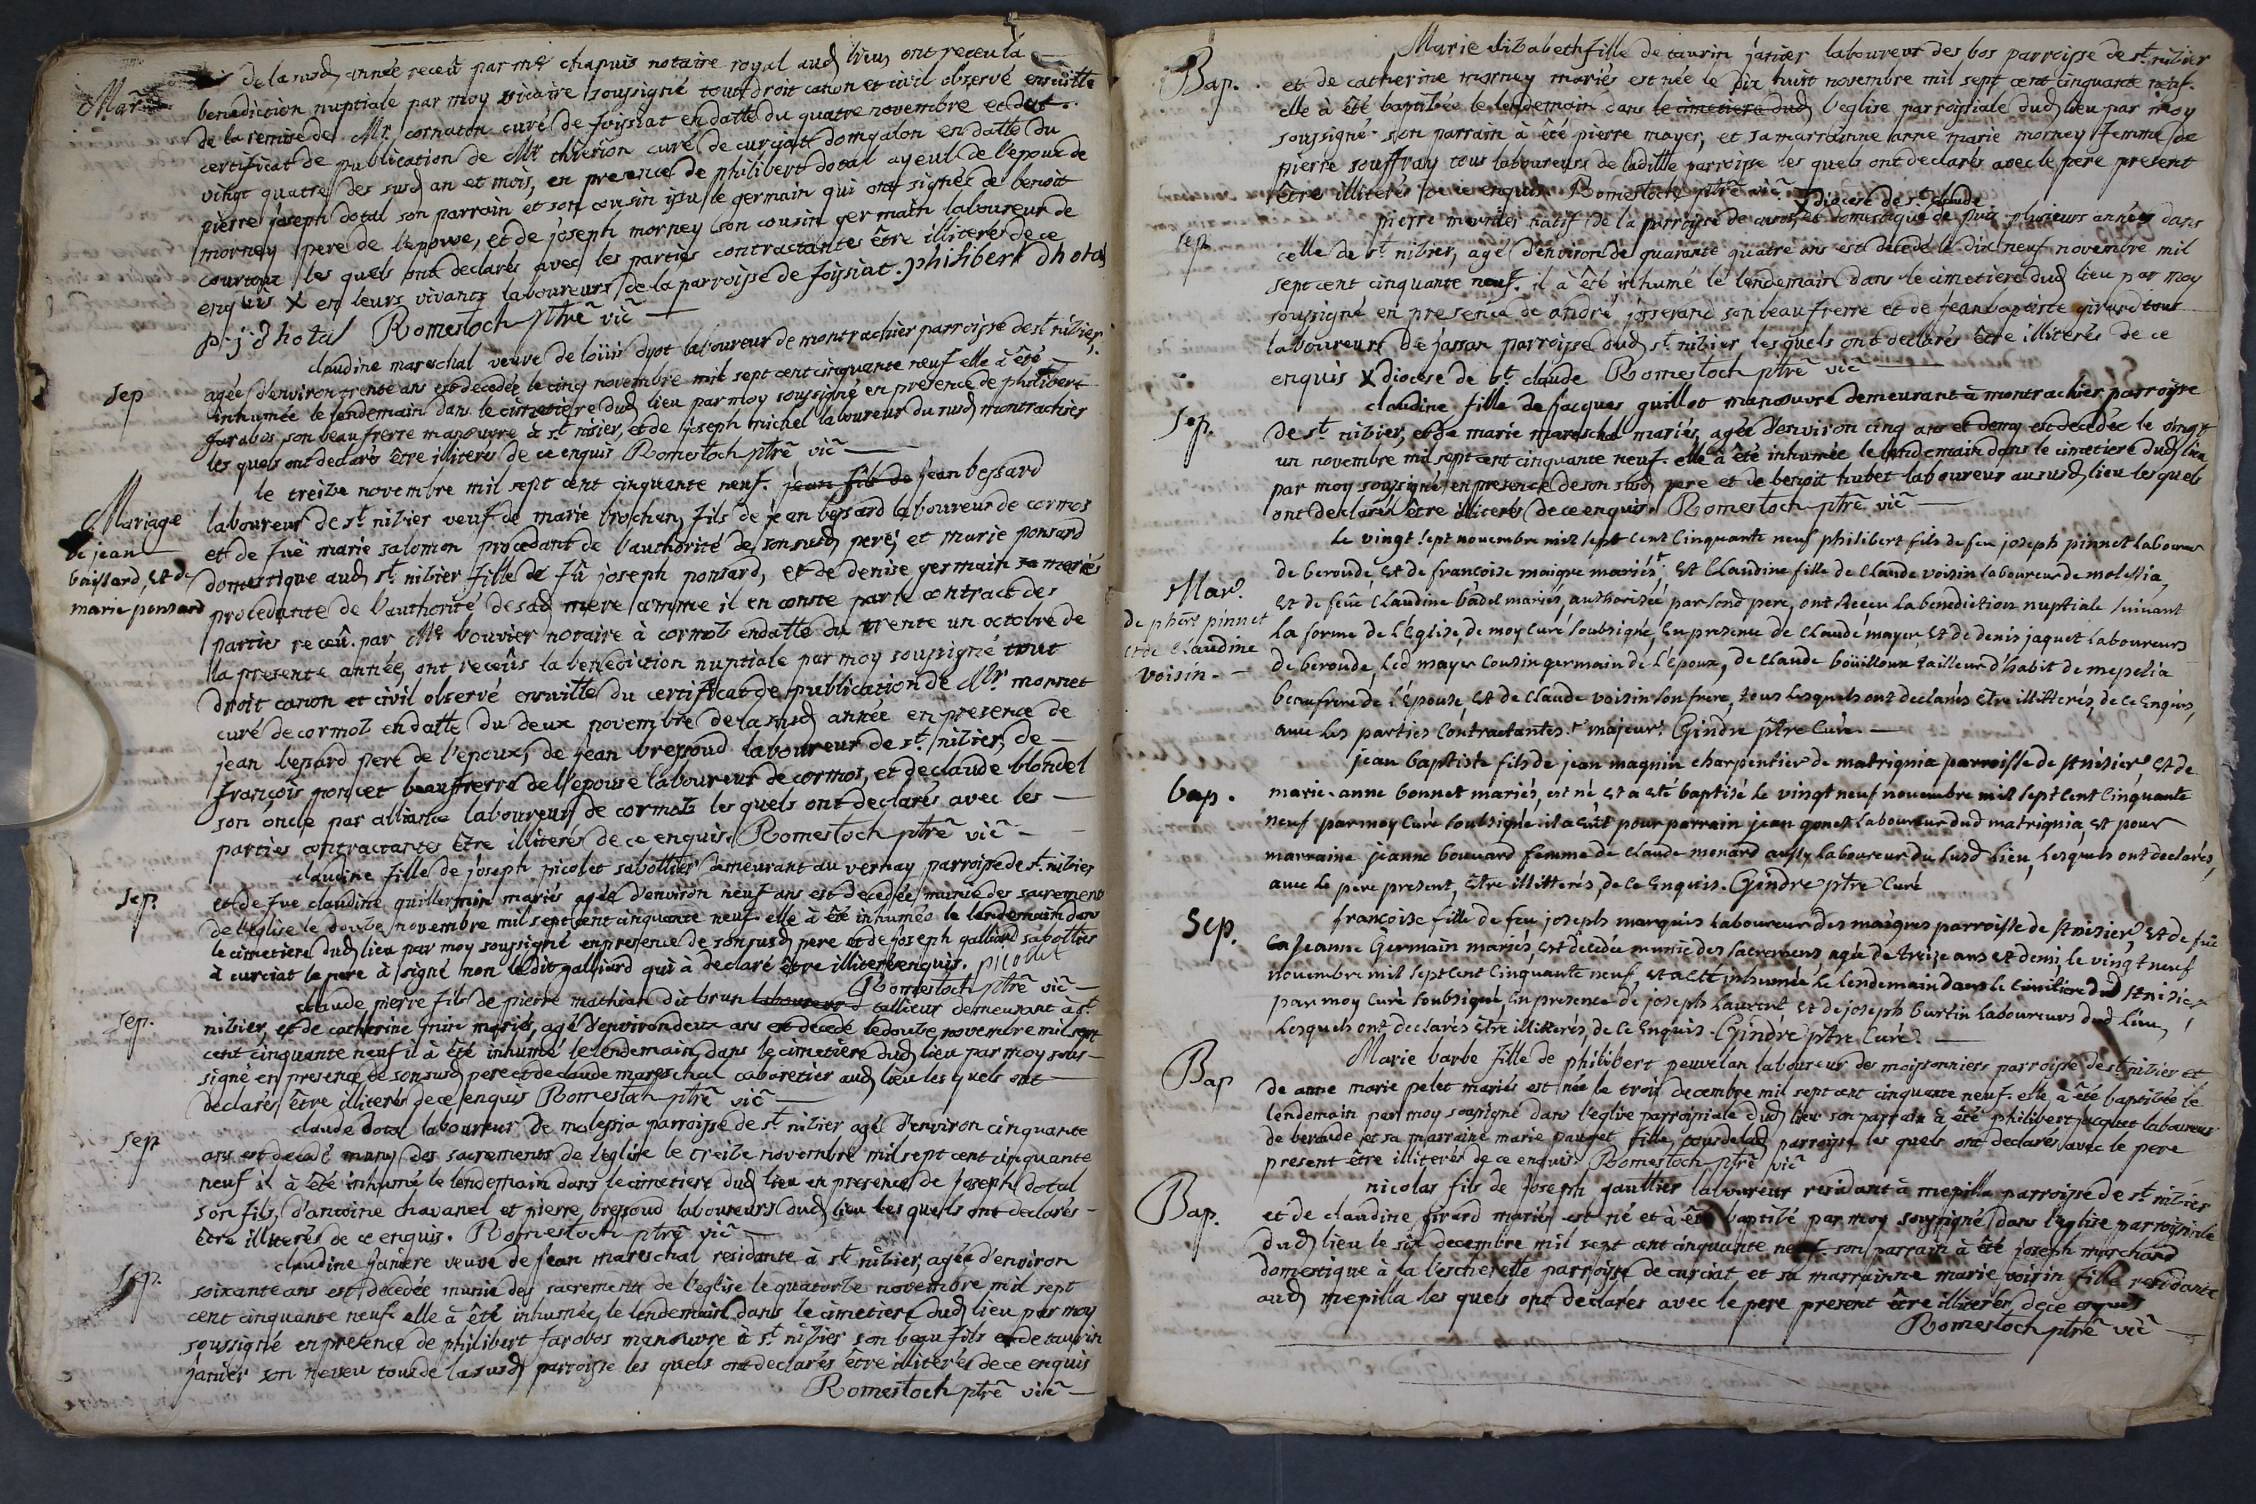 Mari
de la susd année receu par mtre chapuis notaire royal aud lieu, ont receu la
benediction nuptiale par moy vicaire soussigné tout droit canon et civil observé ensuitte
de la remise de Mr. cornaton curé de foissiat en datte du quatre novembre et du
certificat de publication de Mr thierion curé de curgiat dongalon en datte du
vingt quatre des susd an et mois, en presence de philibert dotal ayeul de l'epoux de
pierre joseph dotal son parroin et son cousin issu le germain qui ont signés de benoit
morney pere de l'epouse, et de joseph morney son cousin germain laboureur de
courtoux les quels ont declarés avec les parties contractantes être illiterés de ce
enquis X en leurs vivants laboureurs de la parroisse de foissiat. philibert dhotal
p j dhotal Romestoch ptre vic
claudine mareschal veuve de loüis dyot laboureur de montrachier parroisse de st nizier
Sep
agée d'environ trente ans est decedée le cinq novembre mil sept cent cinquante neuf elle à été
inhumée le lendemain dans le cimetiere dud lieu par moy soussigné en presence de philibert
farabos son beau frerre manœuvre à st nisier, et de joseph michel laboureur du susd montrachier
les quels ont declarés être illiterés de ce enquis Romestoch ptre vic
le treize novembre mil sept cent cinquante neuf. jean fils de jean bessard
Mariage
de jean
baissard, et de
marie ponsard
laboureur de st nizier veuf de marie brochan, fils de jean bessard laboureur de cormos
et de fuë marie salomon procedant de l'authorité de son susd pere, et marie ponsard
domestique aud st nizier fille de fû joseph ponsard, et de denise germain mariés
procedante de l'authorité de sad mere comme il en conste par le contract des
parties receû par Me bouvier notaire à cormoz en datte du trente un octobre de
la presente année, ont receûs la benediction nuptiale par moy soussigné tout
droit canon et civil observé ensuitte du certificat de publication de Mr monnet
curé de cormoz en datte du deux novembre de la susd année en presence de
jean bessard pere de l'epoux, de jean bressoud laboureur de st nizier, de
françois poncet beaufrerre de l'epouse laboureur de cormos, et de claude blondel
son oncle par alliance laboureur de cormoz les quels ont declarés avec les
parties contractantes être illiterés de ce enquis Romestoch ptre vic
claudine fille de joseph picolet sabottier demeurant au vernay parroisse de st nizier
Sep
et de fue claudine quillermin mariés agée d'environ neuf ans est decedée munie des sacrements
de l'eglise le douze novembre mil sept cent cinquante neuf. elle à été inhumée le lendemain dans
le cimetiere dud lieu par moy soussigné en presence de son susd pere et de joseph galliard sabottier
à curciat le pere à signé non ledit galliard qui à declaré être illiteré enquis. picollet
Romestoch ptre vic
claude pierre fils de pierre mathian dit brun laboureur tallieur demeurant à st
Sep.
nizier, et de catherine mariés, agé d'environ deux ans est decedé le douze novembre mil sept
cent cinquante neuf il à été inhumé le lendemain dans le cimetiere dud lieu par moy sous-
signé en presence de son susd pere et de claude mareschal cabaretier aud lieu les quels ont
declarés être illiterés de ce enquis Romestoch ptre vic
claude dotal laboureur de malessia parroisse de st nizier agé d'environ cinquante
Sep
ans est decedé muny des sacrements de l'eglise le treize novembre mil sept cent cinquante
neuf il à été inhumé le lendemain dans le cimetiere dud lieu en presence de joseph dotal
son fils, d'antoine chavanel et pierre bressoud laboureurs dud lieu les quels ont declarés
être illiterés de ce enquis. Romestoch ptre vic
claudine janiere veuve de jean mareschal residante à st nizier, agée d'environ
Sep.
soixante ans est decedée munie des sacrements de l'eglise le quatorze novembre mil sept
cent cinquante neuf elle à été inhumée, le lendemain dans le cimetiere dud lieu par moy
soussigné en presence de philibert farobos manœuvre à st nizier son beau fils et de taurin
janier son neveu tous de lasusd parroisse les quels ont declarés être illiterés de ce enquis
Romestoch ptre vic
Marie elizabeth fille de taurin janier laboureur des bos parroisse de st nizier
Bap.
et de catherine morney mariés est née le dix huit novembre mil sept cent cinquante neuf.
elle à été baptisée le lendemain dans le cimetiere dud l'eglise parroissiale dud lieu par moy
soussigné. son parrain à été pierre mayer, et sa marrainne anne marie morney femme de
pierre souffray tous laboureurs de laditte parroisse les quels ont declarés avec le pere present
être illiterés de ce enquis Romestoch ptre vic X diocese de st claude
pierre meunier natif de la parroisse de et domestique de puis plusieurs années dans
Sep
celle de st nizier, agé d'environ de quarante quatre ans est decedé le dix neuf novembre mil
sept cent cinquante neuf. il à été inhumé le lendemain dans le cimetiere dud lieu par moy
soussigné en presence de andré josserand son beau frerre et de jean baptiste girard tout
laboureurs de jassan parroisse dud st nizier les quels ont declarés être illiterés de ce
enquis X diocese de st claude Romestoch ptre vic
claudine fille de jacques guillot manœuvre demeurant à montrachier parroisse
Sep.
de st nizier, et de marie mareschal mariés, agée d'environ cinq ans et demy est decedée le vingt
un novembre mil sept cent cinquante neuf. elle à été inhumée le lendemain dans le cimetiere dud lieu
par moy soussigné en presence de son susd pere et de benoit hubet laboureur au susd lieu les quels
ont declarés être illiterés de ce enquis Romestoch ptre vic
Le vingt sept novembre mil sept cent cinquante neuf philibert fils de feu joseph pinnet laboureur
Mar.
de phert pinnet
et de Claudine
voisin.
de beroude et de francoise maigre mariés, et Claudine fille de Claude voisin laboureur de molessia,
et de feûe Claudine badel mariés, authorisée par sond pere, ont receu la benediction nuptiale suivant
la forme de l'Eglise, de moy Curé soubsigné, en presence de Claude mayer, et de denis jaquet laboureurs
de beroude, led mayer Cousin germain de l'époux, de Claude boüilloux tailleur d'habit de mepelia
beaufrere de l'Epouse, et de Claude voisin son frere, tous lesquels ont declarés etre illitterés, de ce enquis,
avec les parties contractantes. r majeur. Gindre ptre Curé.
jean baptiste fils de jean magnin charpentier de matrignia parroisse de st nisier, et de
bap.
marie-anne bonnet mariés, est né et a eté baptisé le vingt neuf novembre mil sept cent cinquante
neuf par moy Curé soubsigné il a eut pour parrain jean gonet laboureur dud matrignia, et pour
marraine jeanne bouvard femme de Claude monard aussy laboureur du susd lieu, lesquels ont declarés,
avec le pere present, etre illitterés, de ce enquis. Gindre ptre Curé
francoise fille de feu joseph marquis laboureur des maigres parroisse de st nisier, et de fuë
Sep.
jeanne Germain mariés, est decedée munie des sacremens, agée de treize ans et demi, le vingt neuf
novembre mil sept cent cinquante neuf, et a eté inhumée le lendemain dans le cimitiere dud st nisier
par moy curé soubsigné, en presence de joseph laurent et de joseph burtin laboureurs dud lieu,
lesquels ont declarés etre illitterés, de ce enquis. Gindre ptre Curé
Marie barbe fille de philibert peuvelan laboureur des moissonniers parroisse de st nizier et
Bap
de anne marie pelet mariés est née le trois decembre mil sept cent cinquante neuf. elle à été baptisée le
lendemain par moy soussigné dans l'eglise parroissiale dud lieu son parrain à été philibert jacquet laboureur
de beroude et sa marraine marie pauget fille, tous de lad parroisse les quels ont declarés avec le pere
present être illiterés de ce enquis Romestoch ptre vic
nicolas fils de joseph gaultier laboureur residant à mepilla parroisse de st nizier
Bap.
et de claudine girard mariés est né et à été baptisé par moy soussigné dans l'eglise parroissiale
dud lieu le six decembre mil sept cent cinquante neuf son parrain à été joseph marchand
domestique à la bescherette parroisse de curciat, et sa marrainne marie voisin fille residante
aud mepilla les quels ont declarés avec le pere present être illiterés, de ce enquis
Romestoch ptre vic